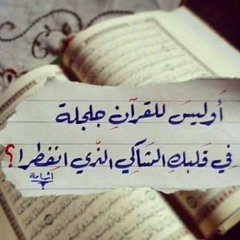 أَوليسَ للقرآنِ جلجلة
في قلبكِ الشاكي الذي انفطرا؟